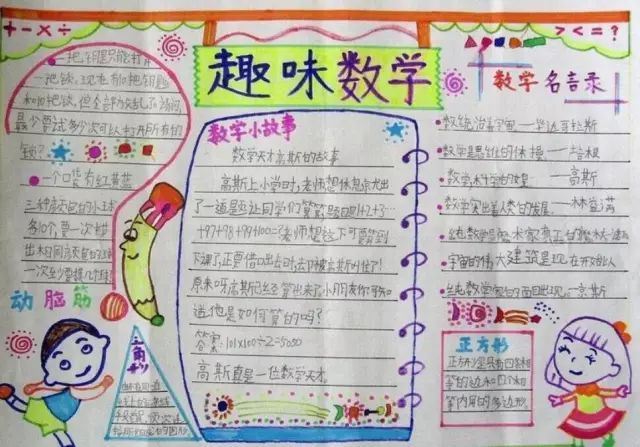 + - × ÷
趣味数学
> < = ?
一把钥匙只能打开
一把锁,现在有10把钥匙
和10把锁,但全部放乱了,请问
最少要试多少次可以打开所有的
锁?
一个口袋有红黄蓝
三种颜色的小球
各10个,要一次
出
一次至少要摸几个球?
动脑筋
三角形
数学小故事
数学天才高斯的故事
高斯上小学时,老师想休息点
了一道题让同学们算算,题目是1+2+3…
+97+98+99+100=?老师想这下可要算到
下课了,正要借口出去时,却被高斯叫住了!
原来呀,高斯已经算出来了,小朋友你可知
道他是如何算的吗?
答案:101×100÷2=5050
高斯真是一位数学天才
数学名言录
数统治着宇宙——毕达哥拉斯
数学是思维的体操——培根
——高斯
数学
纯数学
宇宙的伟大建筑是现在开始以
纯数学
正方形
正方形是具有四条相
等的边和四个相
等内角的多边形。